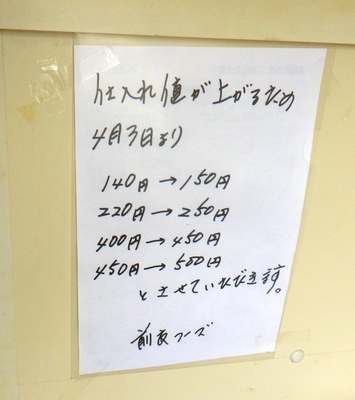 仕入れ値が上がるため
4月3日より
140円→150円
220円→250円
400円→450円
450円→500円
とさせていただきます。
前衣フーズ